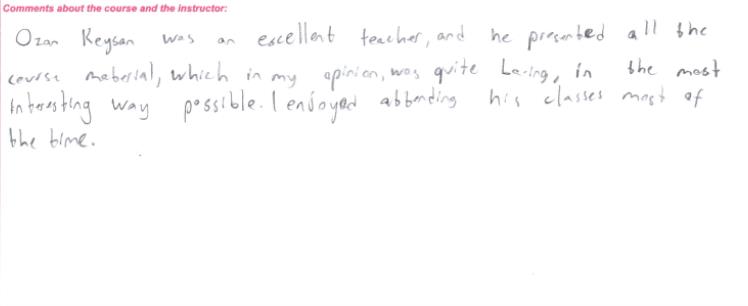 Comments about the course and the instructor:
Ozan Keysan was an excellent teacher, and he presented all the
course material, which in my opinion, was quite boring, in the most
interesting way possible. I enjoyed attending his classes most of
the time.